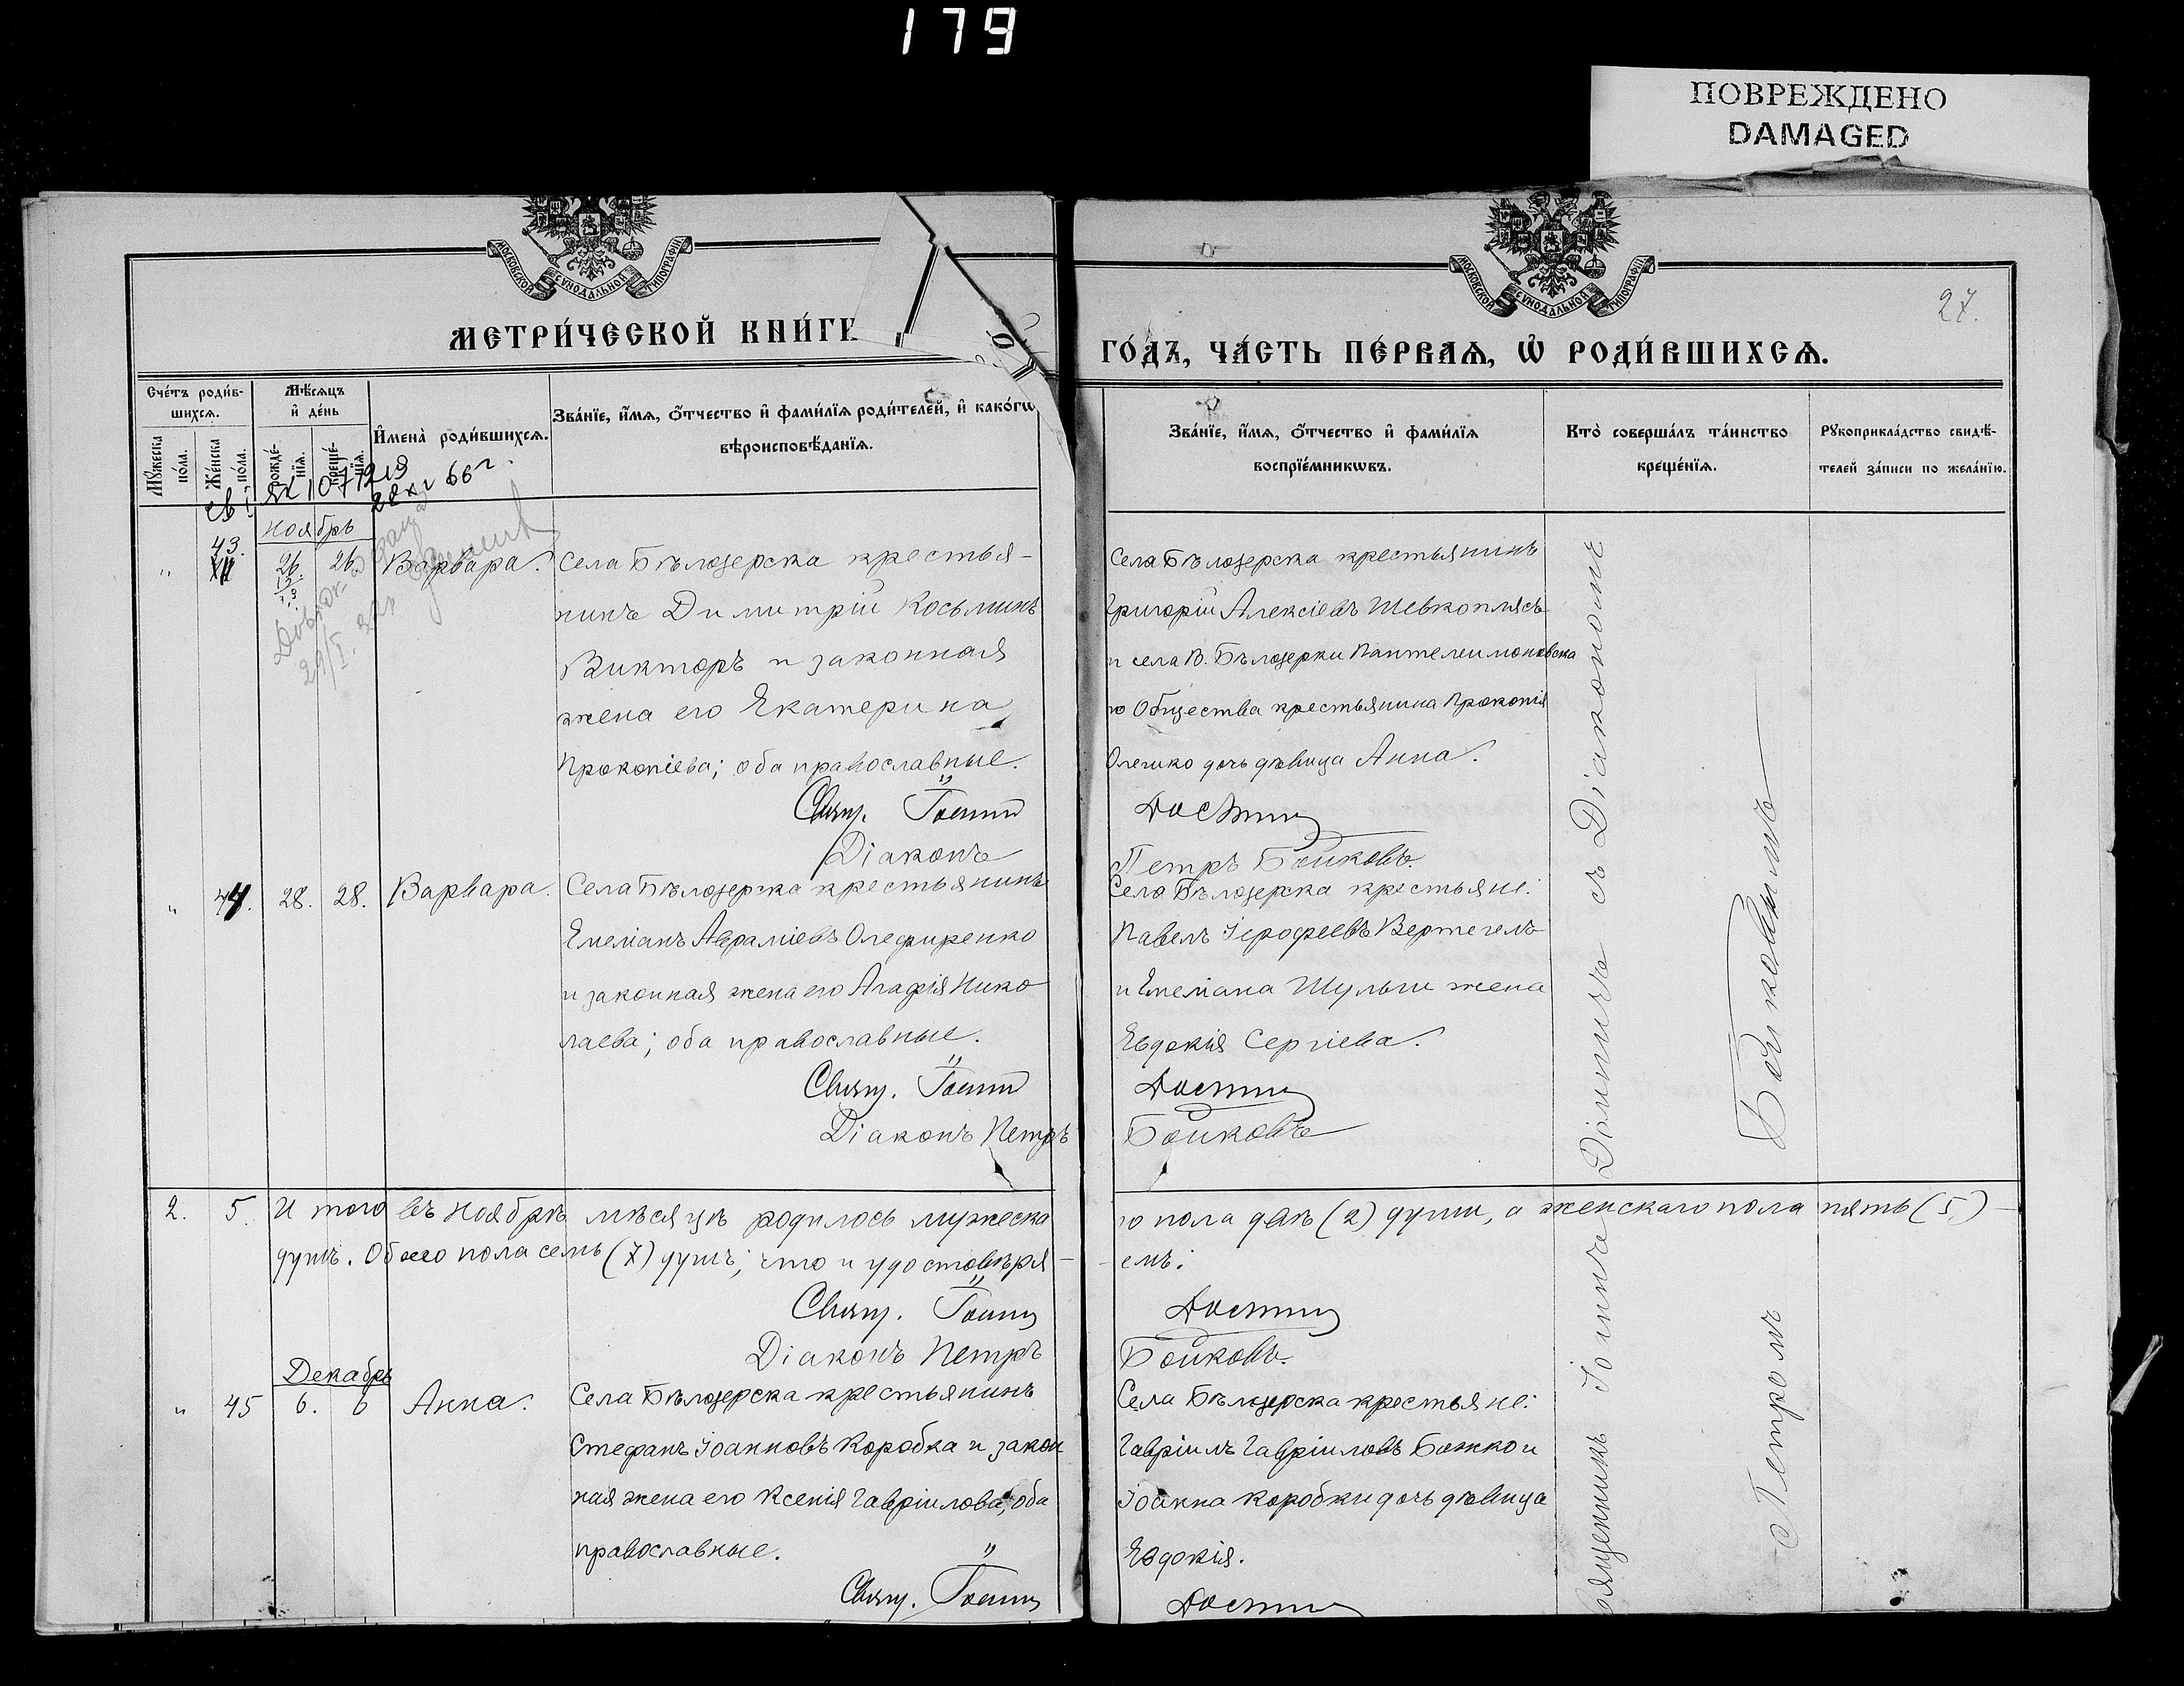 179
ПОВРЕЖДЕНО
DAMAGED
МОСКОВСКОЙ СѴНОДАЛЬНОЙ ТИПОГРАФІИ
МОСКОВСКОЙ СѴНОДАЛЬНОЙ ТИПОГРАФІИ
27.
МЕТРИ́ЧЕСКОЙ КНИ́ГИ
ГО́ДЪ, ЧА́СТЬ ПЕ́РВАѦ, Ѡ҆ РОДИ́ВШИХСѦ.
Сче́тъ роди́в-
шихсѧ.
Мꙋ́жеска по́ла.
Же́нска по́ла.
Мѣ́сѧцъ
и҆ де́нь
рожде́-
нїѧ.
креще́-
нїѧ.
И҆мена̀ роди́вшихсѧ.
Зва́нїе, и҆́мѧ, ѻ҆́тчество и҆ фами́лїѧ роди́телей, и҆ како́гѡ
вѣроисповѣ́данїѧ.
Зва́нїе, и҆́мѧ, ѻ҆́тчество и҆ фами́лїѧ
воспрїе́мникѡвъ.
Кто̀ соверша́лъ та́инство
креще́нїѧ.
Рꙋкоприкла́дство свидѣ́-
телей за́писи по жела́нїю.
28 XI 66 г.
Ноябрь
43.
26. 26. Варвара.
Села Бѣлозерска крестья-
нинъ Димитрій Косьминъ
Викторъ и законная
жена его Екатерина
Прокопіева; оба православные.
Свящ. Іоаннъ
Діаконъ
Села Бѣлозерска крестьянинъ
Григорій Алексіевъ Шевкоплясъ
и села В. Бѣлозерки Пантелеимоновска
го Общества крестьянина Прокопія
Олешко дочь дѣвица Анна.
Петръ Бойковъ.
" 44. 28. 28. Варвара.
Села Бѣлозерска крестьянинъ
Емеліанъ Авраміевъ Олефиренко
и законная жена его Агафія Нико
лаева; оба православные.
Свящ. Іоаннъ
Діаконъ Петръ
Села Бѣлозерска крестьяне:
Павелъ Іерофеевъ Вертегелъ
и Емеліана Шульги жена
Евдокія Сергіева.
Бойковъ
2. 5. И того въ Ноябрѣ мѣсяцѣ родилось мужеска
го пола двѣ (2) души, а женскаго пола пять (5) —
душъ. Обоего пола семь (7) душъ; что и удостовѣря —
— емъ:
Свящ. Іоаннъ
Діаконъ Петръ
Бойковъ.
Декабрь
" 45 6. 6 Анна.
Села Бѣлозерска крестьянинъ
Стефанъ Іоанновъ Коробка и закон
ная жена его Ксенія Гавріилова, оба
православные.
Свящ. Іоаннъ
Села Бѣлозерска крестьяне:
Гавріилъ Гавріиловъ Божко и
Іоанна Коробки дочь дѣвица
Евдокія.
Священникъ Іоаннъ
съ Діакономъ
Петромъ
Бойковымъ